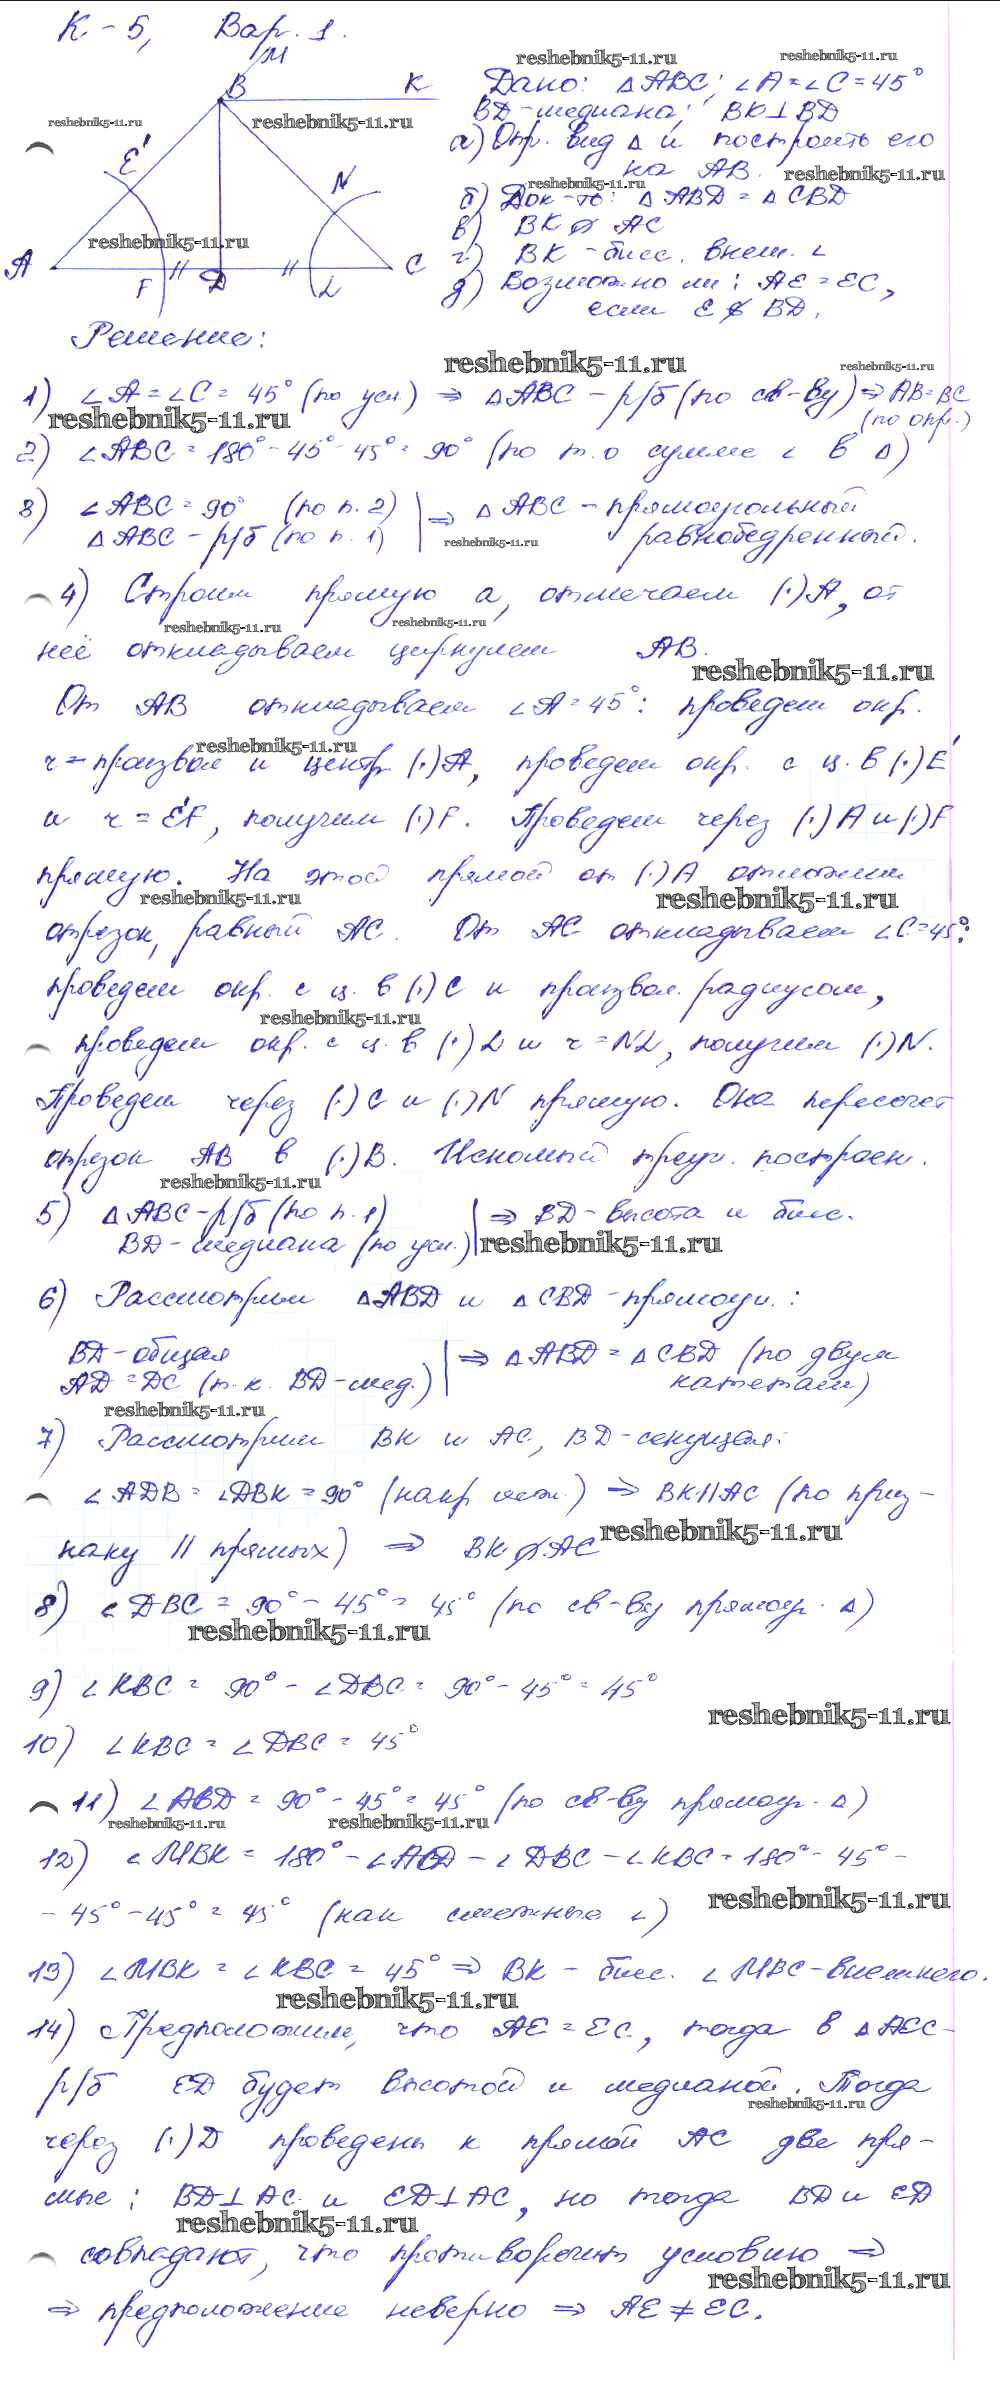 К-5, Вар. 1.
M
B
K
E'
N
A
F
D
L
C
Дано: △ABC; ∠A=∠C=45°
BD-медиана; BK⊥BD
а) Опр. вид △ и построить его
на AB.
б) Док-ть: △ABD = △CBD
в) BK ∦ AC
г) BK - бисс. внеш. ∠
д) Возможно ли: AE=EC,
если E∉BD.
Решение:
1) ∠A=∠C= 45° (по усл.) ⇒ △ABC - р/б (по св-ву) ⇒ AB=BC
(по опр.)
2) ∠ABC = 180°-45°-45° = 90° (по т. о сумме ∠ в △)
3) ∠ABC = 90° (по п. 2) | ⇒ △ABC - прямоугольный
△ABC - р/б (по п. 1) | равнобедренный.
4) Строим прямую a, отмечаем (·)A, от
неё откладываем циркулем AB.
От AB откладываем ∠A=45°: проведем окр.
r=произвол и центр (·)A, проведем окр. с ц. в (·)E'
и r = E'F, получим (·)F. Проведем через (·)A и (·)F
прямую. На этой прямой от (·)A отложим
отрезок, равный AC. От AC откладываем ∠C=45°:
проведем окр. с ц. в (·)C и произвол. радиусом,
проведем окр. с ц. в (·)L и r=NL, получим (·)N.
Проведем через (·)C и (·)N прямую. Она пересечет
отрезок AB в (·)B. Искомый треуг. построен.
5) △ABC-р/б (по п. 1) | ⇒ BD - высота и бисс.
BD - медиана (по усл.) |
6) Рассмотрим △ABD и △CBD - прямоуг.:
BD-общая | ⇒ △ABD = △CBD (по двум
AD=DC (т.к. BD-мед.) | катетам)
7) Рассмотрим BK и AC, BD-секущая:
∠ADB = ∠DBK = 90° (накр леж.) ⇒ BK||AC (по приз-
наку || прямых) ⇒ BK ∦ AC
8) ∠DBC = 90° - 45° = 45° (по св-ву прямоуг. △)
9) ∠KBC = 90° - ∠DBC = 90° - 45° = 45°
10) ∠KBC = ∠DBC = 45°
11) ∠ABD = 90° - 45° = 45° (по св-ву прямоуг. △)
12) ∠MBK = 180° - ∠ABD - ∠DBC - ∠KBC = 180° - 45° -
- 45° - 45° = 45° (как смежные ∠)
13) ∠MBK = ∠KBC = 45° ⇒ BK - бисс. ∠MBC-внешнего.
14) Предположим, что AE=EC, тогда в △AEC-
р/б ED будет высотой и медианой. Тогда
через (·)D проведены к прямой AC две пря-
мые: BD⊥AC и ED⊥AC, но тогда BD и ED
совпадают, что противоречит условию ⇒
⇒ предположение неверно ⇒ AE≠EC.
reshebnik5-11.ru